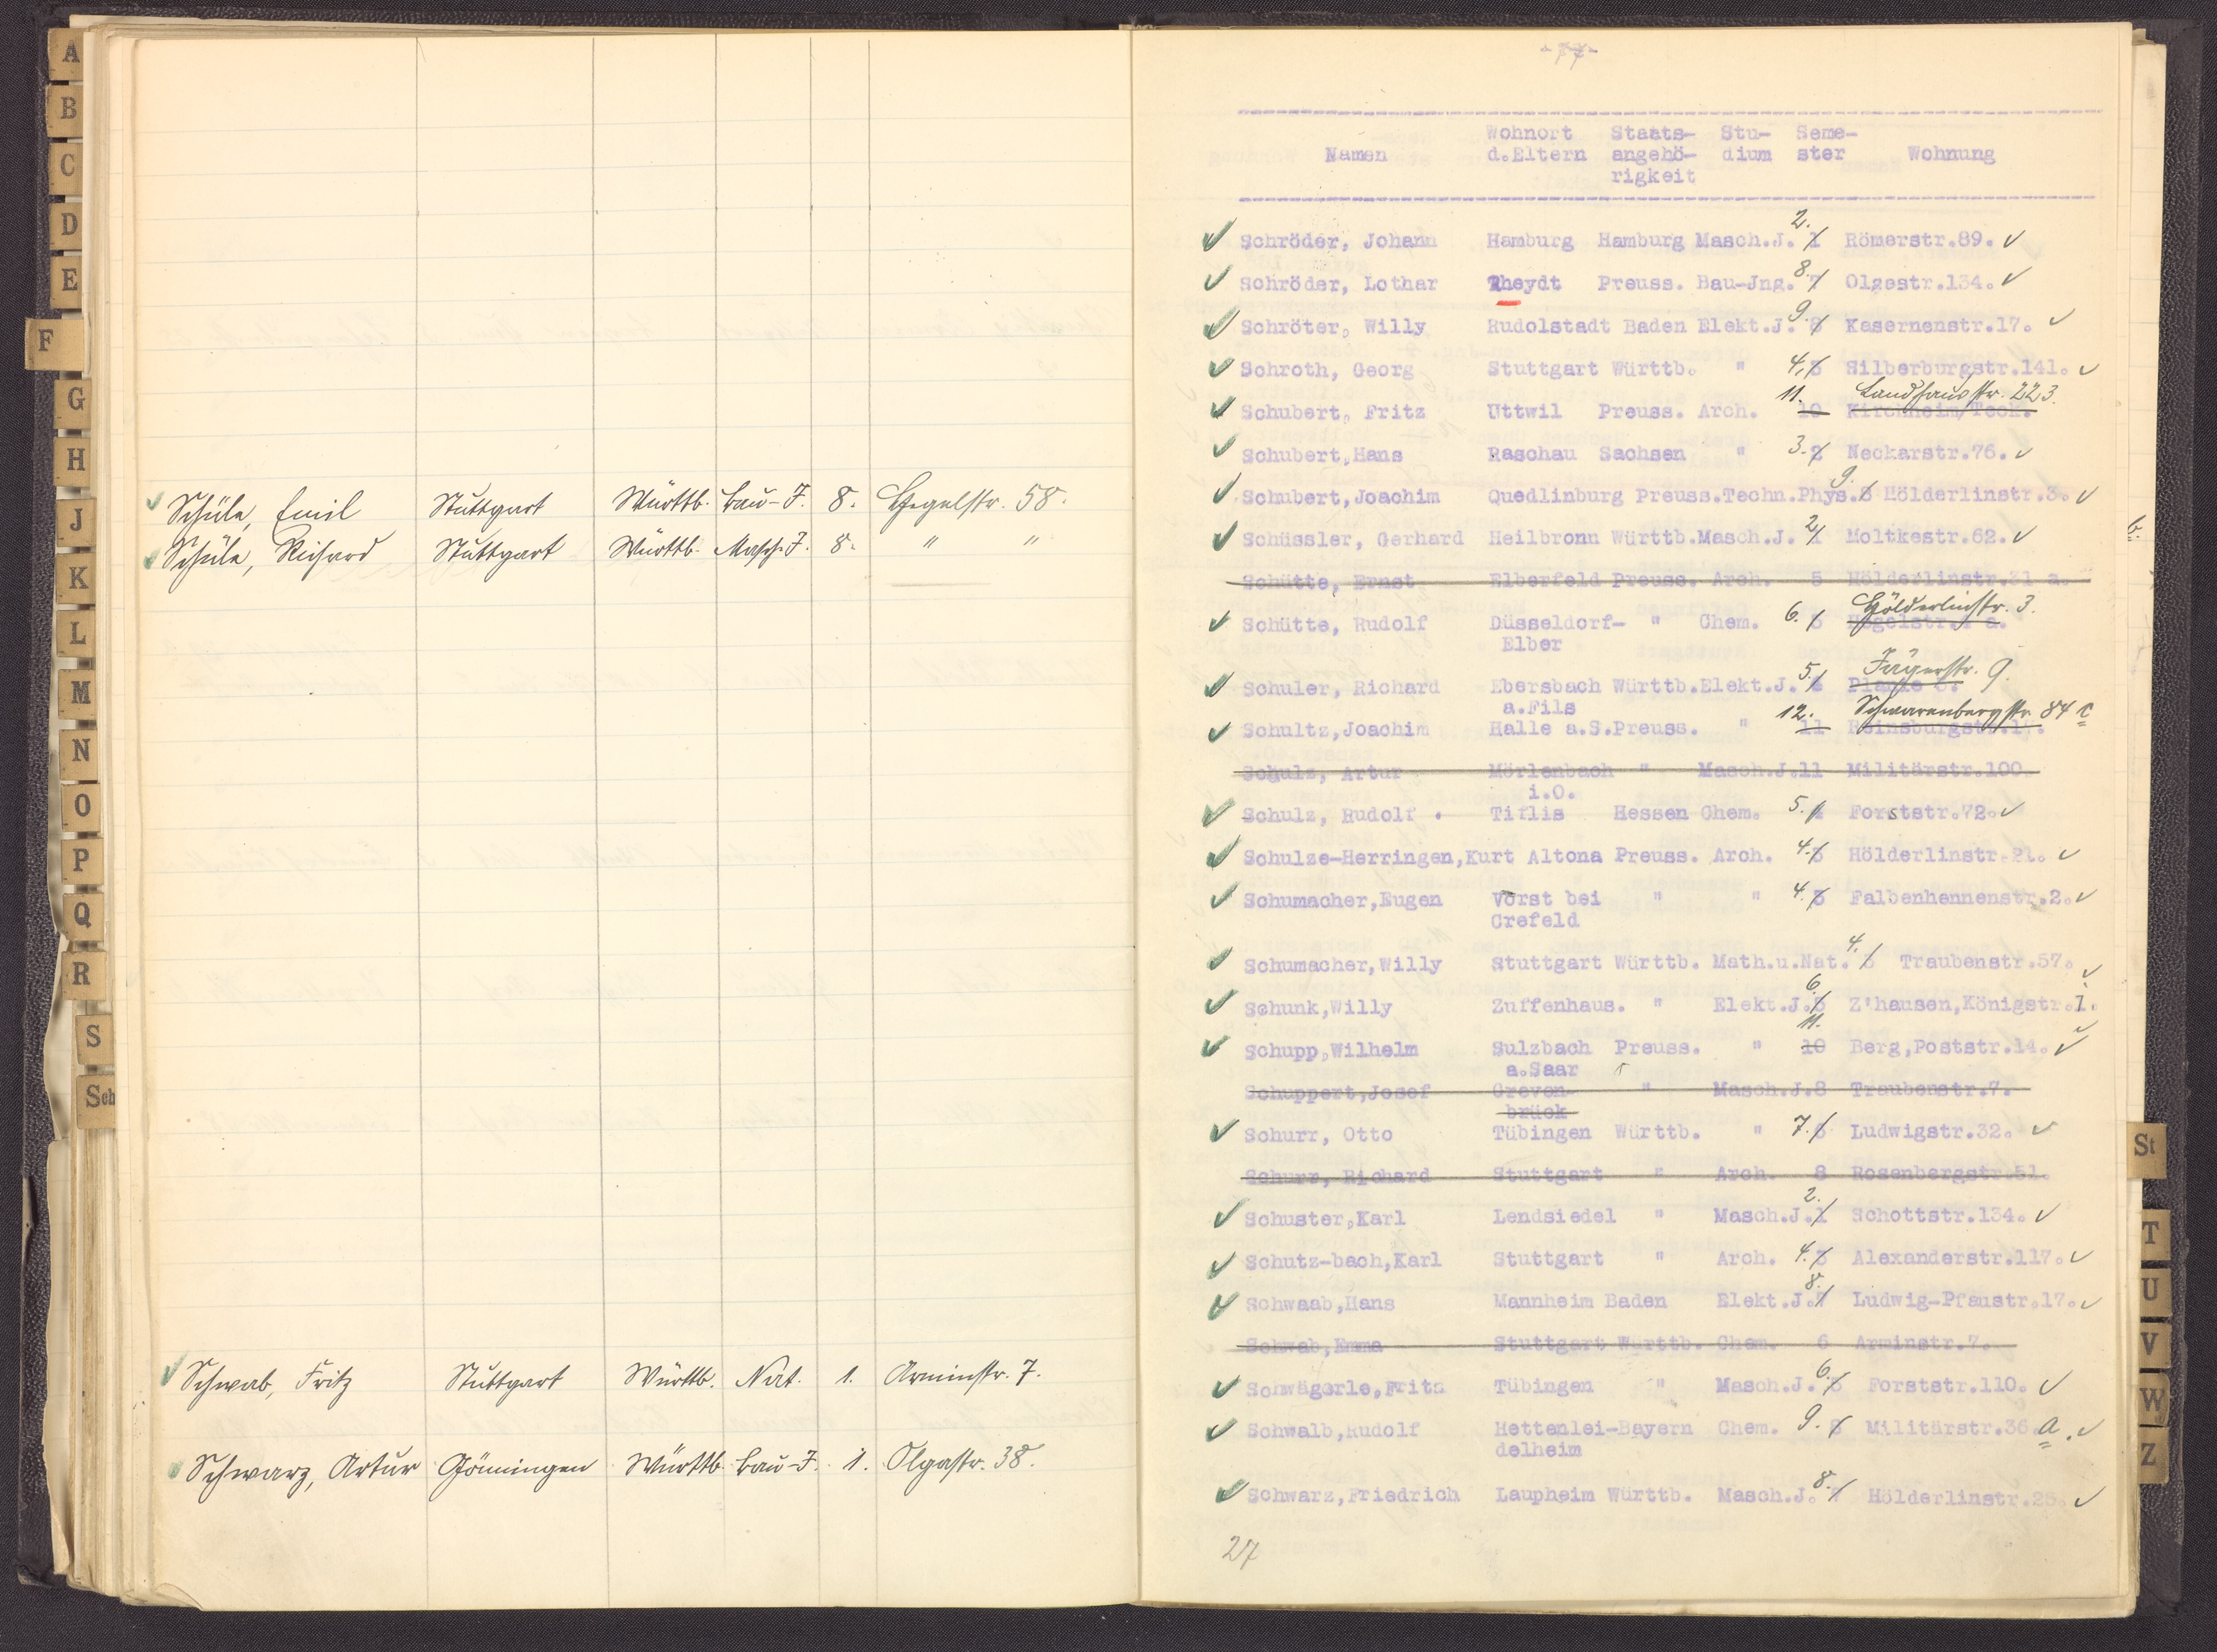 A
B
C
D
E
F
G
H
J
K
L
M
N
O
P
Q
R
S
Sch
Schüle, Emil Stuttgart Württb. Bau-J. 8. Hegelstr. 58.
Schüle, Richard Stuttgart Württb. Masch.J. 8. " "
Schwab, Fritz Stuttgart Württb. Nat. 1. Arminstr. 7.
Schwarz, Artur Gönningen Württb. Bau-J. 1. Olgastr. 38.
-77-
Wohnort Staats- Stu- Seme-
Namen d.Eltern angehö- dium ster Wohnung
rigkeit
2.
Schröder, Johann Hamburg Hamburg Masch.J. 1 Römerstr.89.
8.
Schröder, Lothar Rheydt Preuss. Bau-Jng. 7 Olgastr.134.
9.
Schröter, Willy Rudolstadt Baden Elekt.J. 8 Kasernenstr.17.
Schroth, Georg Stuttgart Württb. " 4. 3 Silberburgstr.141.
11. Landhausstr. 223.
Schubert, Fritz Uttwil Preuss. Arch. 10 Kirchheim/Teck.
Schubert,Hans Raschau Sachsen " 3. 2 Neckarstr.76.
9.
Schubert,Joachim Quedlinburg Preuss.Techn.Phys.8 Hölderlinstr.3.
2.
Schüssler, Gerhard Heilbronn Württb.Masch.J. 1 Moltkestr.62.
Schütte, Ernst Elberfeld Preuss. Arch. 5 Hölderlinstr.31 a.
Hölderlinstr. 3.
Schütte, Rudolf Düsseldorf- " Chem. 6. 5 Hegelstr.4 a.
Elber
5. Jägerstr. 9.
Schuler, Richard Ebersbach Württb.Elekt.J. 4 Planie 5.
a.Fils
12. Schwarenbergstr. 84 c
Schultz,Joachim Halle a.S.Preuss. " 11 Reinsburgstr.1.
Schulz, Artur Mörlenbach " Masch.J.11 Militärstr.100.
i.O.
Schulz, Rudolf . Tiflis Hessen Chem. 5. 4 Forststr.72.
Schulze-Herringen,Kurt Altona Preuss. Arch. 4. 3 Hölderlinstr.21.
Schumacher,Eugen Vorst bei " " 4. 3 Falbenhennenstr.2.
Crefeld
4.
Schumacher,Willy Stuttgart Württb. Math.u.Nat. 3 Traubenstr.57.
6.
Schunk,Willy Zuffenhaus. " Elekt.J.5 Z'hausen,Königstr.1.
11.
Schupp,Wilhelm Sulzbach Preuss. " 10 Berg,Poststr.14.
a.Saar
Schuppert,Josef Greven- " Masch.J.8 Traubenstr.7.
brück
Schurr, Otto Tübingen Württb. " 7. 6 Ludwigstr.32.
Schurr, Richard Stuttgart " Arch. 8 Rosenbergstr.51.
2.
Schuster,Karl Lendsiedel " Masch.J.1 Schottstr.134.
Schutz-bach,Karl Stuttgart " Arch. 4. 3 Alexanderstr.117.
8.
Schwaab,Hans Mannheim Baden Elekt.J.7 Ludwig-Pfaustr.17.
Schwab,Emma Stuttgart Württb. Chem. 6 Arminstr.7.
6.
Schwägerle,Fritz Tübingen " Masch.J. 5 Forststr.110.
Schwalb,Rudolf Hettenlei-Bayern Chem. 9. 8 Militärstr.36 a.
delheim
8.
Schwarz,Friedrich Laupheim Württb. Masch.J. 7 Hölderlinstr.25.
27
St
T
U
V
W
Z